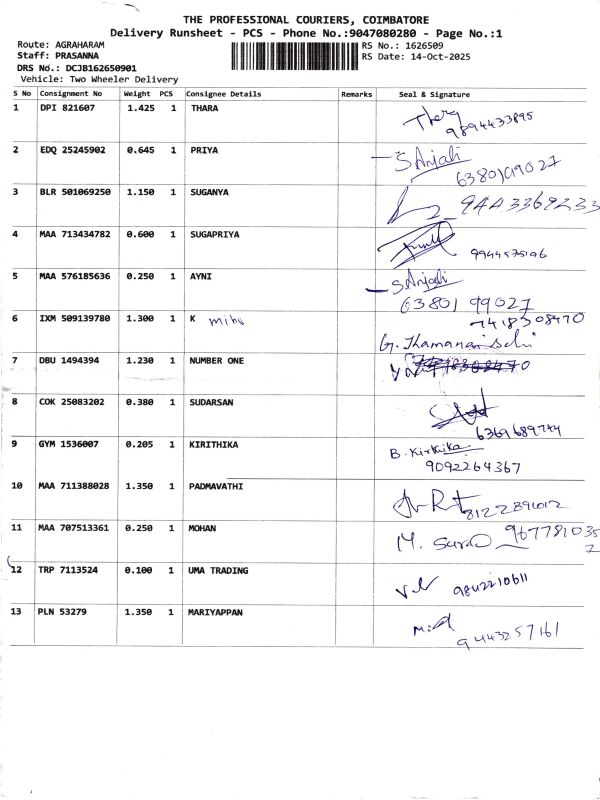 THE PROFESSIONAL COURIERS, COIMBATORE
Delivery Runsheet - PCS - Phone No.:9047080280 - Page No.:1
Route: AGRAHARAM RS No.: 1626509
Staff: PRASANNA RS Date: 14-Oct-2025
DRS No.: DCJB162650901
Vehicle: Two Wheeler Delivery
S No Consignment No Weight PCS Consignee Details Remarks Seal & Signature
1 DPI 821607 1.425 1 THARA
9894433895
2 EDQ 25245902 0.645 1 PRIYA S Anjali
6380199027
3 BLR 501069250 1.150 1 SUGANYA 9443369233
4 MAA 713434782 0.600 1 SUGAPRIYA
5 MAA 576185636 0.250 1 AYNI S Anjali
6380199027
6 IXM 509139780 1.300 1 K 7418308470
7 DBU 1494394 1.230 1 NUMBER ONE
8 COK 25083202 0.380 1 SUDARSAN
6369689744
9 GYM 1536007 0.205 1 KIRITHIKA B. Kirthika
9092264367
10 MAA 711388028 1.350 1 PADMAVATHI
11 MAA 707513361 0.250 1 MOHAN M.
12 TRP 7113524 0.100 1 UMA TRADING 9842210611
13 PLN 53279 1.350 1 MARIYAPPAN
9443257161